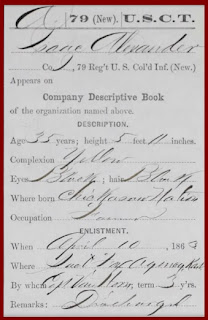 A 79 (New). U.S.C.T.
Isaac Alexander
Co. , 79 Reg't U. S. Col'd Inf. (New.)
Appears on
Company Descriptive Book
of the organization named above.
DESCRIPTION.
Age 35 years; height 5 feet 11 inches.
Complexion Yellow
Eyes Black; hair Black
Where born Nation
Occupation Farmer
ENLISTMENT.
When April 10, 1863
Where
By whom term 3 y'rs.
Remarks: Discharged